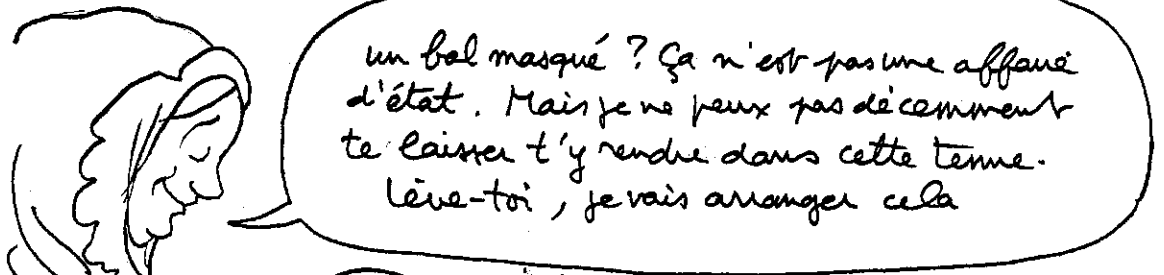 un bal masqué ? Ça n'est pas une affaire
d'état. Mais je ne peux pas décemment
te laisser t'y rendre dans cette tenue.
lève-toi, je vais arranger cela